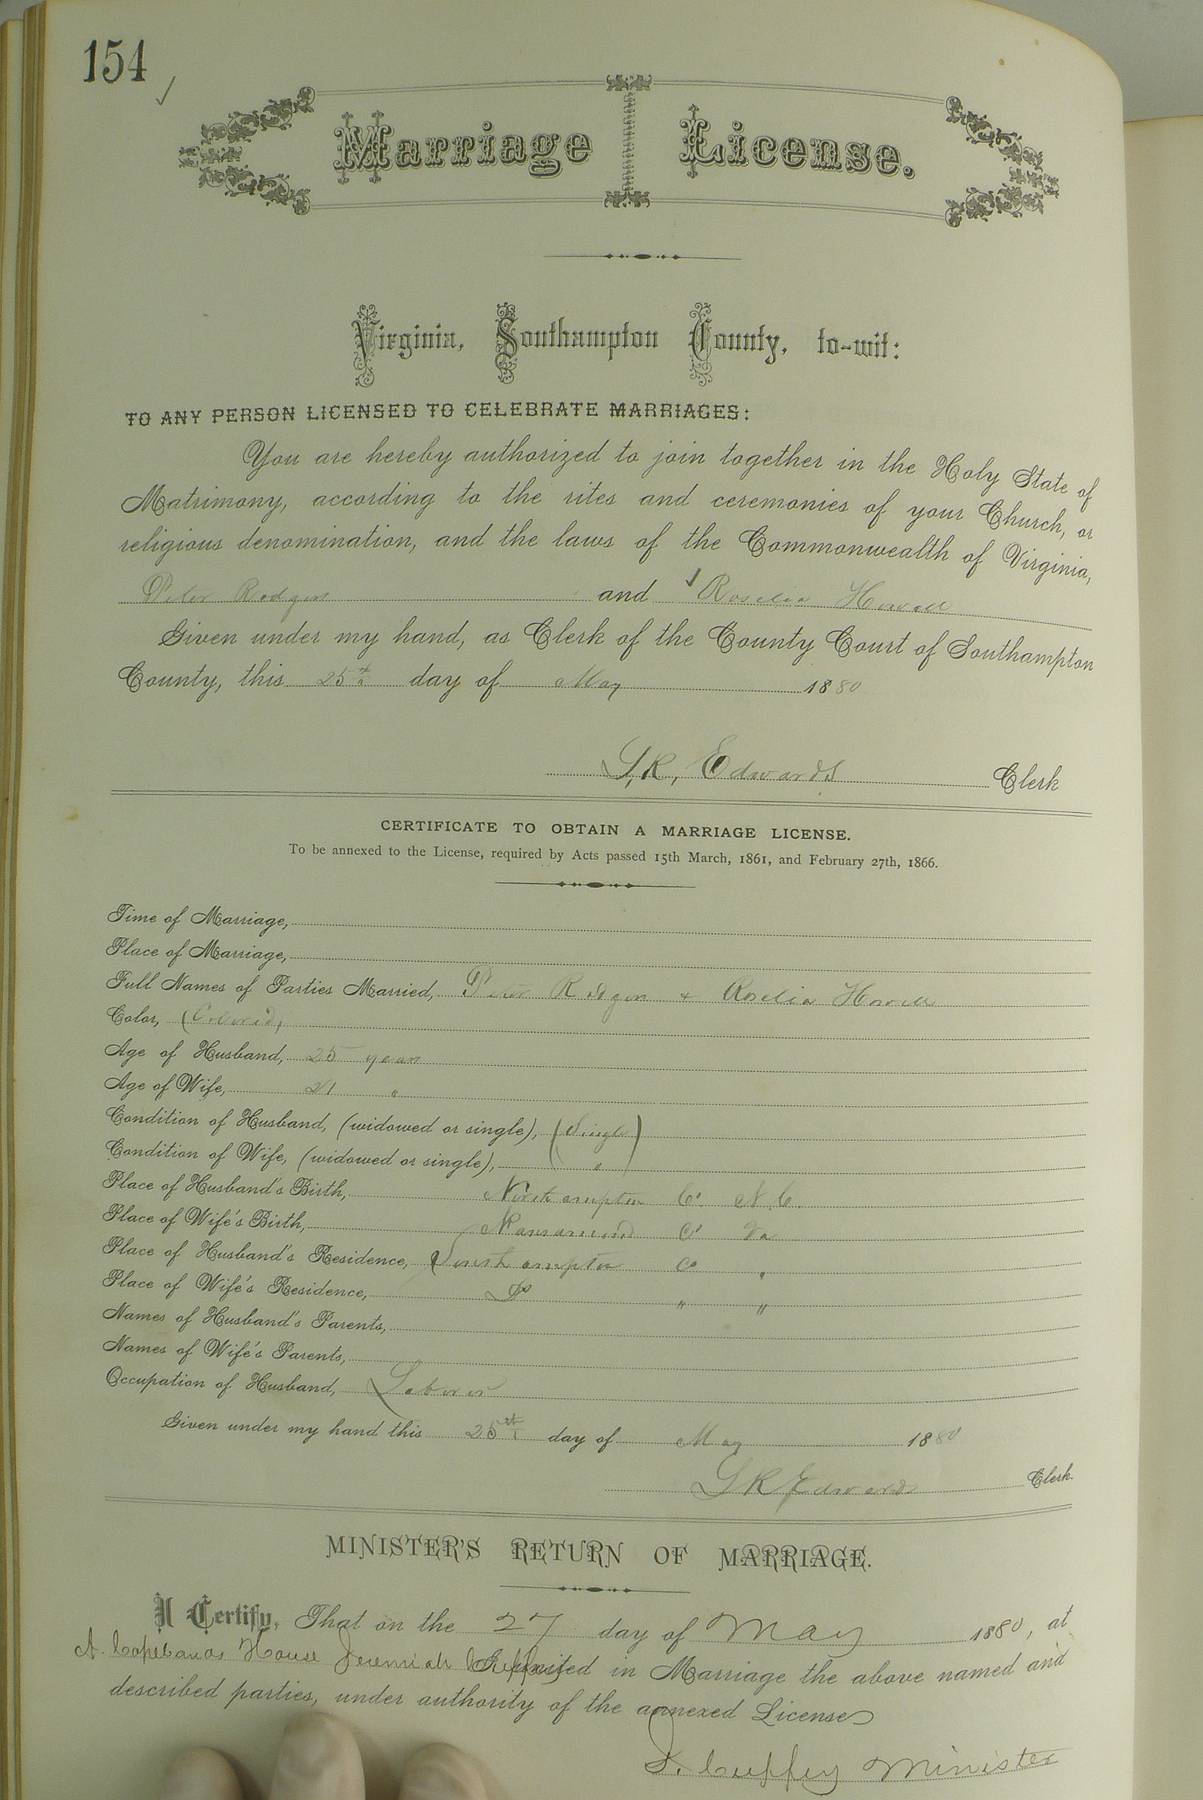 154
Marriage License.
Virginia, Southampton County, to-wit:
TO ANY PERSON LICENSED TO CELEBRATE MARRIAGES:
You are hereby authorized to join together in the Holy State of
Matrimony, according to the rites and ceremonies of your Church, or
religious denomination, and the laws of the Commonwealth of Virginia,
Peter Rodgers and Roselia Howell
Given under my hand, as Clerk of the County Court of Southampton
County, this 25th day of May 1880
L, R, Edwards Clerk
CERTIFICATE TO OBTAIN A MARRIAGE LICENSE.
To be annexed to the License, required by Acts passed 15th March, 1861, and February 27th, 1866.
Time of Marriage,
Place of Marriage,
Full Names of Parties Married, Peter Rodgers + Roselia Howell
Color, (Colored)
Age of Husband, 25 years
Age of Wife, 21 "
Condition of Husband, (widowed or single), (Single)
Condition of Wife, (widowed or single), "
Place of Husband's Birth, Northampton Co N.C.
Place of Wife's Birth, Nansemond Co Va
Place of Husband's Residence, Southampton Co "
Place of Wife's Residence, Do " "
Names of Husband's Parents,
Names of Wife's Parents,
Occupation of Husband, Laborer
Given under my hand this 25th day of May 1880
L R Edwards Clerk.
MINISTER'S RETURN OF MARRIAGE.
I Certify, That on the 27 day of May 1880, at
A. Copelands House Jeremiah Cuffey United in Marriage the above named and
described parties, under authority of the annexed License
J. Cuffey Minister